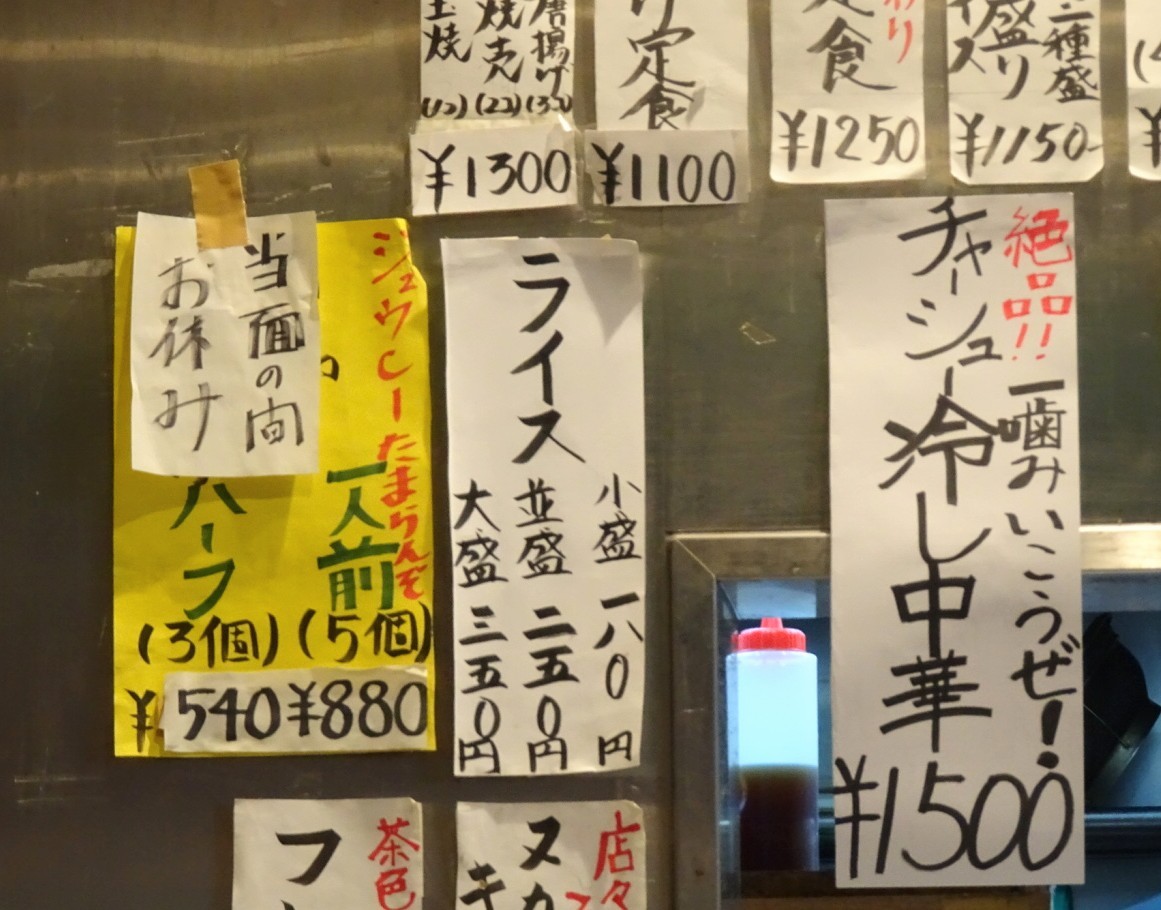 唐揚げ
焼売
玉焼
(12) (22) (32)
¥1300
リ定食
¥1100
わり
定食
¥1250
二種盛
盛り
イス
¥1150
シュウCーたまらんぞ
当面の間
お休み
一人前
(5個)
¥880
ハーフ
(3個)
¥540
ライス
小盛 一八0円
並盛 二五0円
大盛 三五0円
絶品!!一噛みいこうぜ!
チャーシュー冷し中華
¥1500
茶色
フ
店々
ヌ
キ